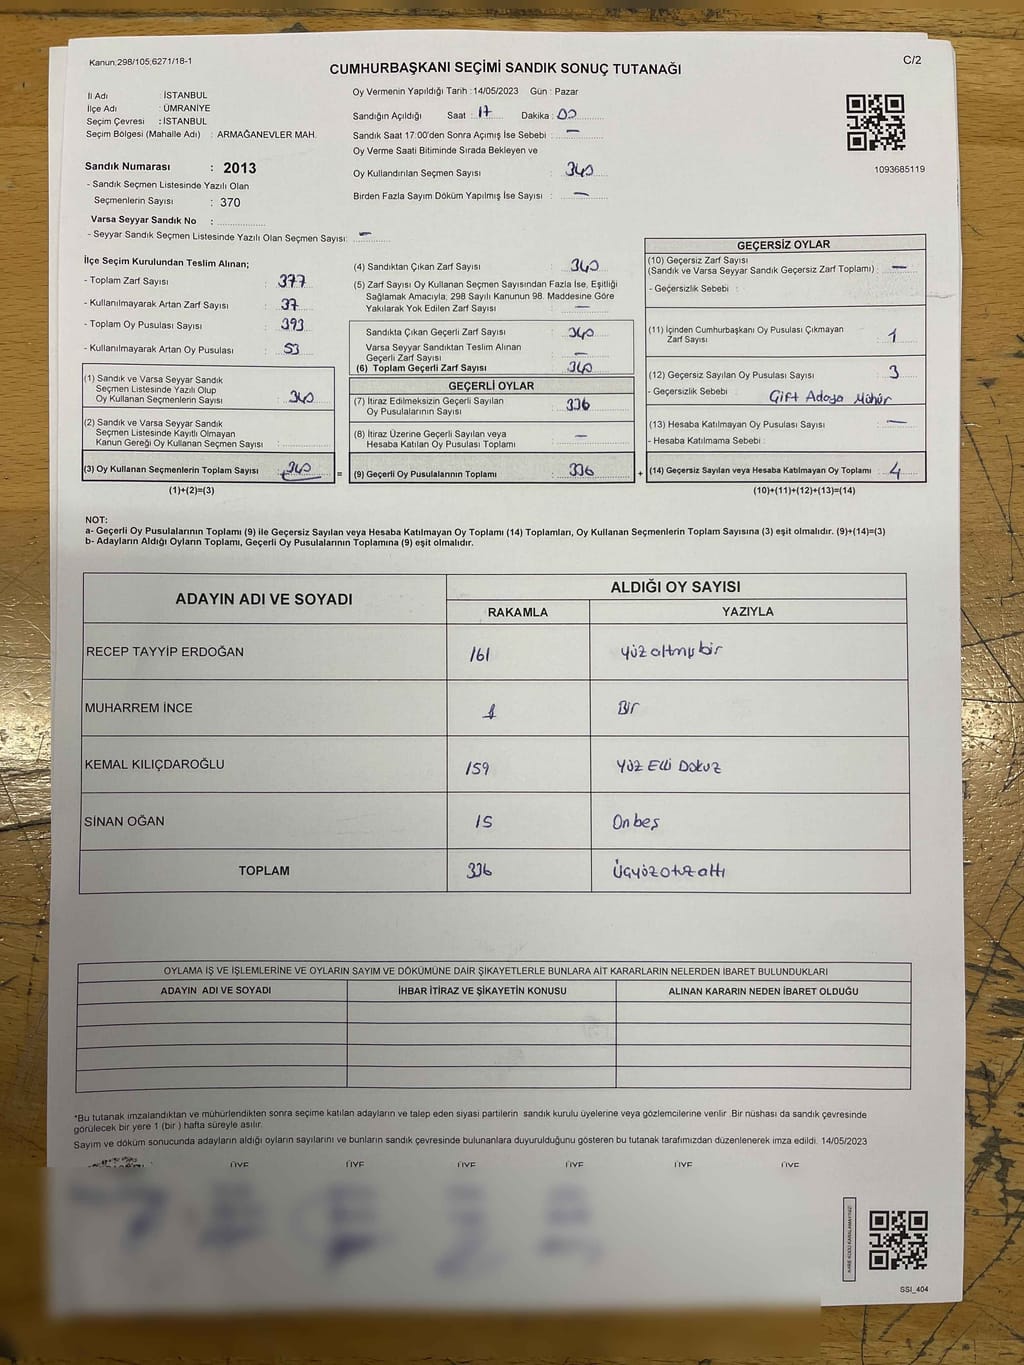 Kanun,298/105;6271/18-1
C/2
CUMHURBAŞKANI SEÇİMİ SANDIK SONUÇ TUTANAĞI
İl Adı : İSTANBUL
İlçe Adı : ÜMRANİYE
Seçim Çevresi : İSTANBUL
Seçim Bölgesi (Mahalle Adı) : ARMAĞANEVLER MAH.
Sandık Numarası : 2013
- Sandık Seçmen Listesinde Yazılı Olan
Seçmenlerin Sayısı : 370
Varsa Seyyar Sandık No :
- Seyyar Sandık Seçmen Listesinde Yazılı Olan Seçmen Sayısı: —
Oy Vermenin Yapıldığı Tarih :14/05/2023 Gün : Pazar
Sandığın Açıldığı Saat : 17 Dakika : 00
Sandık Saat 17:00'den Sonra Açımış İse Sebebi : —
Oy Verme Saati Bitiminde Sırada Bekleyen ve
Oy Kullandırılan Seçmen Sayısı : 340
Birden Fazla Sayım Döküm Yapılmış İse Sayısı : —
1093685119
İlçe Seçim Kurulundan Teslim Alınan;
- Toplam Zarf Sayısı : 377
- Kullanılmayarak Artan Zarf Sayısı : 37
- Toplam Oy Pusulası Sayısı : 393
- Kullanılmayarak Artan Oy Pusulası : 53
(1) Sandık ve Varsa Seyyar Sandık
Seçmen Listesinde Yazılı Olup
Oy Kullanan Seçmenlerin Sayısı : 340
(2) Sandık ve Varsa Seyyar Sandık
Seçmen Listesinde Kayıtlı Olmayan
Kanun Gereği Oy Kullanan Seçmen Sayısı :
(3) Oy Kullanan Seçmenlerin Toplam Sayısı : 340
(1)+(2)=(3)
(4) Sandıktan Çıkan Zarf Sayısı : 340
(5) Zarf Sayısı Oy Kullanan Seçmen Sayısından Fazla İse, Eşitliği
Sağlamak Amacıyla, 298 Sayılı Kanunun 98. Maddesine Göre
Yakılarak Yok Edilen Zarf Sayısı : —
Sandıkta Çıkan Geçerli Zarf Sayısı : 340
Varsa Seyyar Sandıktan Teslim Alınan
Geçerli Zarf Sayısı : —
(6) Toplam Geçerli Zarf Sayısı : 340
GEÇERLİ OYLAR
(7) İtiraz Edilmeksizin Geçerli Sayılan
Oy Pusulalarının Sayısı : 336
(8) İtiraz Üzerine Geçerli Sayılan veya
Hesaba Katılan Oy Pusulası Toplamı : —
= (9) Geçerli Oy Pusulalarının Toplamı : 336 +
GEÇERSİZ OYLAR
(10) Geçersiz Zarf Sayısı
(Sandık ve Varsa Seyyar Sandık Geçersiz Zarf Toplamı) : —
- Geçersizlik Sebebi :
(11) İçinden Cumhurbaşkanı Oy Pusulası Çıkmayan
Zarf Sayısı : 1
(12) Geçersiz Sayılan Oy Pusulası Sayısı : 3
- Geçersizlik Sebebi : Çift Adaya Mühür
(13) Hesaba Katılmayan Oy Pusulası Sayısı : —
- Hesaba Katılmama Sebebi :
(14) Geçersiz Sayılan veya Hesaba Katılmayan Oy Toplamı : 4
(10)+(11)+(12)+(13)=(14)
NOT:
a- Geçerli Oy Pusulalarının Toplamı (9) ile Geçersiz Sayılan veya Hesaba Katılmayan Oy Toplamı (14) Toplamları, Oy Kullanan Seçmenlerin Toplam Sayısına (3) eşit olmalıdır. (9)+(14)=(3)
b- Adayların Aldığı Oyların Toplamı, Geçerli Oy Pusulalarının Toplamına (9) eşit olmalıdır.
ADAYIN ADI VE SOYADI
ALDIĞI OY SAYISI
RAKAMLA YAZIYLA
RECEP TAYYİP ERDOĞAN 161 Yüz altmış bir
MUHARREM İNCE 1 Bir
KEMAL KILIÇDAROĞLU 159 Yüz Elli Dokuz
SİNAN OĞAN 15 On beş
TOPLAM 336 Üçyüz otuz altı
OYLAMA İŞ VE İŞLEMLERİNE VE OYLARIN SAYIM VE DÖKÜMÜNE DAİR ŞİKAYETLERLE BUNLARA AİT KARARLARIN NELERDEN İBARET BULUNDUKLARI
ADAYIN ADI VE SOYADI İHBAR İTİRAZ VE ŞİKAYETİN KONUSU ALINAN KARARIN NEDEN İBARET OLDUĞU
*Bu tutanak imzalandıktan ve mühürlendikten sonra seçime katılan adayların ve talep eden siyasi partilerin sandık kurulu üyelerine veya gözlemcilerine verilir .Bir nüshası da sandık çevresinde
görülecek bir yere 1 (bir ) hafta süreyle asılır.
Sayım ve döküm sonucunda adayların aldığı oyların sayılarını ve bunların sandık çevresinde bulunanlara duyurulduğunu gösteren bu tutanak tarafımızdan düzenlenerek imza edildi. 14/05/2023
ÜYE ÜYE ÜYE ÜYE ÜYE ÜYE
KARE KODU KARALAMAYINIZ!
SSI_404